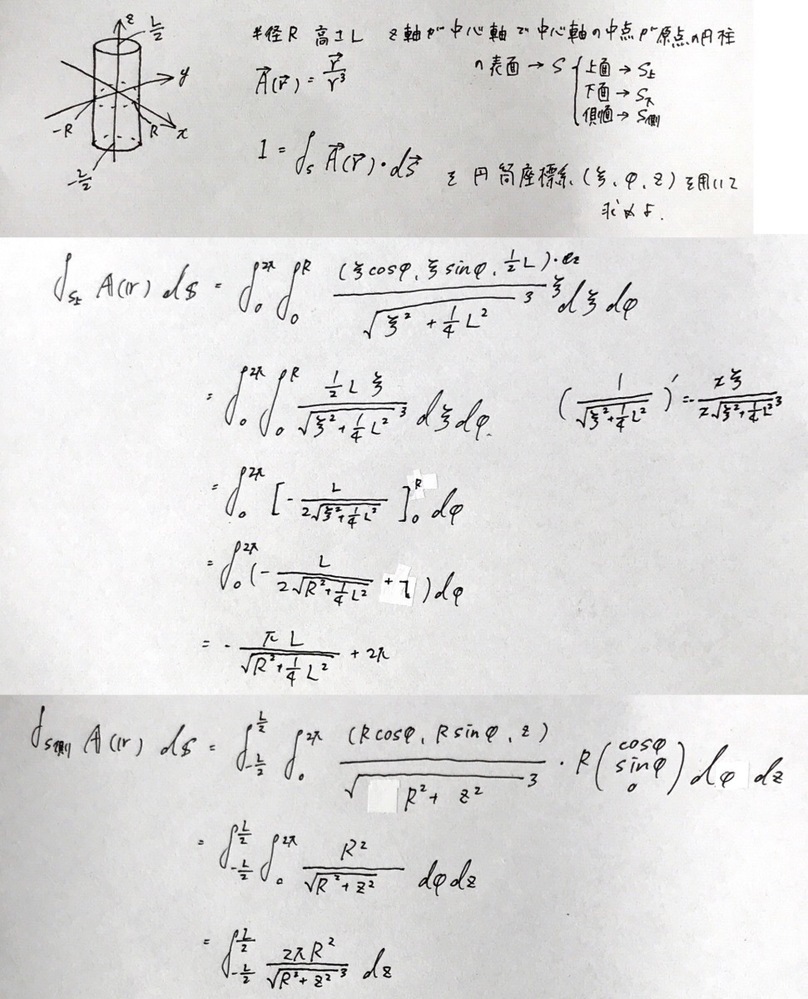 z L/2
半径R 高さL z軸が中心軸で中心軸の中点が原点の円柱
の表面 → S { 上面 → S上
下面 → S下
側面 → S側
y
x
-R
R
-L/2
A⃗(r⃗) = r⃗/r³
I = ∫_S A⃗(r⃗)・dS⃗ を円筒座標系(ξ, φ, z)を用いて
求めよ.
∫_{S上} A(r) dS = ∫_0^{2π} ∫_0^R (ξcosφ, ξsinφ, 1/2 L)・e_z / √(ξ² + 1/4 L²)³ ξ dξ dφ
= ∫_0^{2π} ∫_0^R (1/2 L ξ) / √(ξ² + 1/4 L²)³ dξ dφ. (1/√(ξ² + 1/4 L²))' = - 2ξ / 2√(ξ² + 1/4 L²)³
= ∫_0^{2π} [ - L / 2√(ξ² + 1/4 L²) ]_0^R dφ
= ∫_0^{2π} ( - L / 2√(R² + 1/4 L²) + 1 ) dφ
= - πL / √(R² + 1/4 L²) + 2π
∫_{S側} A(r) dS = ∫_{-L/2}^{L/2} ∫_0^{2π} (Rcosφ, Rsinφ, z) / √(R² + z²)³ ・ R (cosφ sinφ 0) dφ dz
= ∫_{-L/2}^{L/2} ∫_0^{2π} R² / √(R² + z²) dφ dz
= ∫_{-L/2}^{L/2} 2πR² / √(R² + z²)³ dz